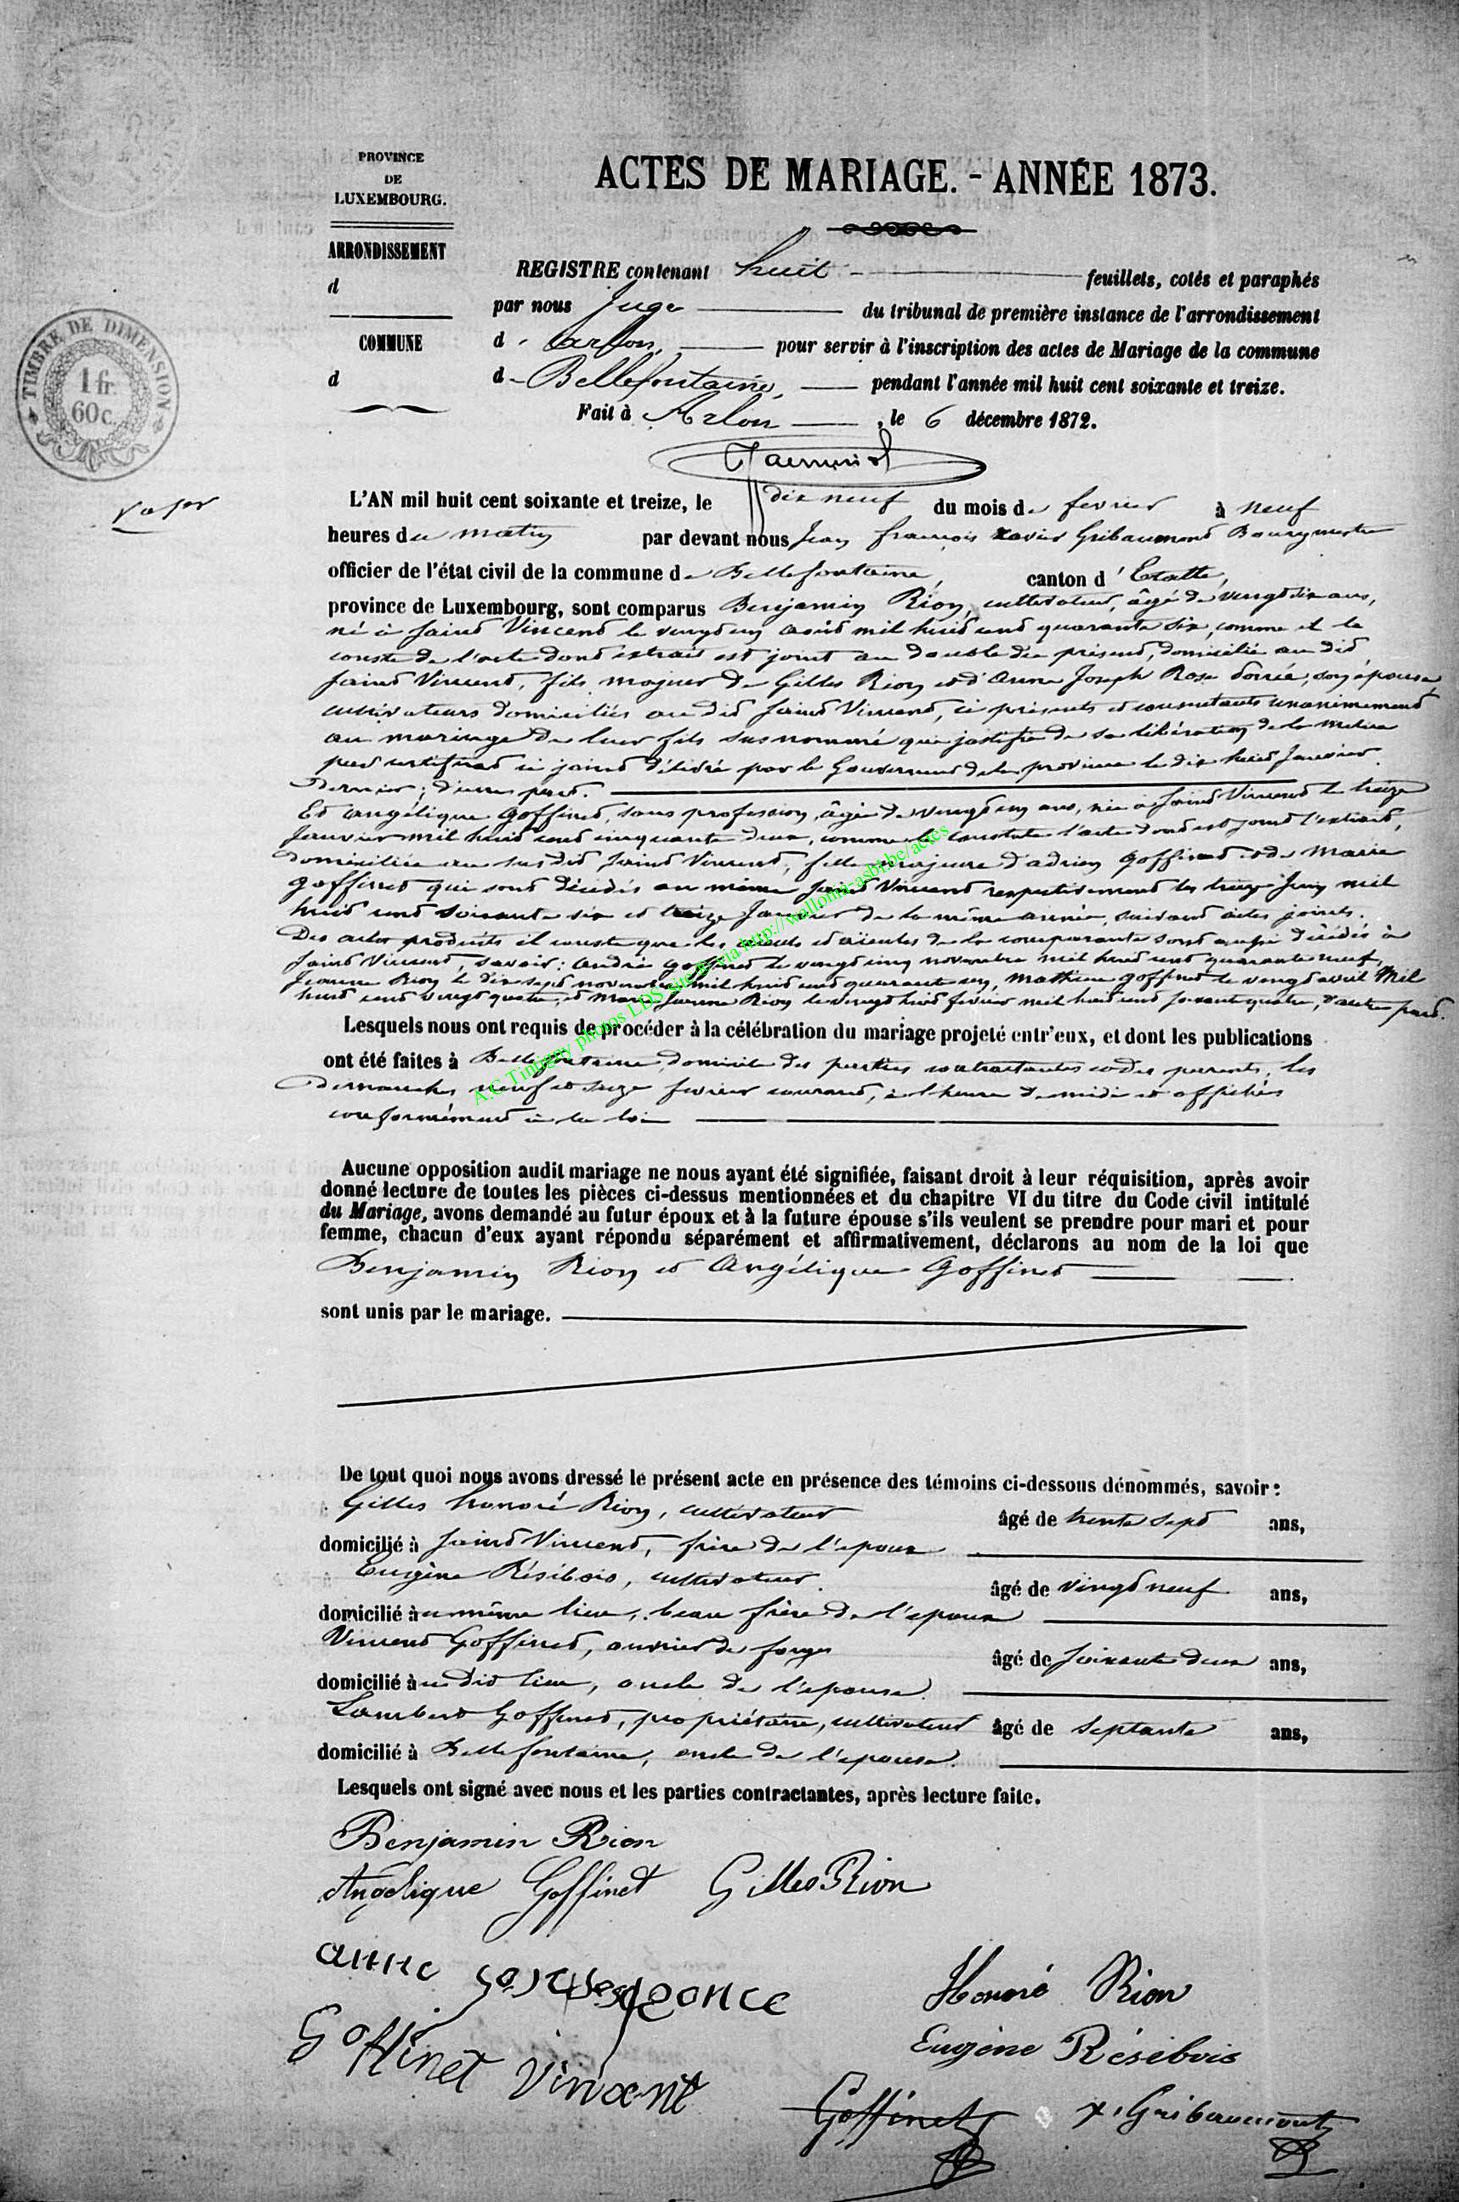 PROVINCE
DE
LUXEMBOURG.
ARRONDISSEMENT
d
COMMUNE
d
TIMBRE DE DIMENSION
1 fr.
60 c.
ACTES DE MARIAGE. - ANNÉE 1873.
REGISTRE contenant huit feuillets, cotés et paraphés
par nous Juge du tribunal de première instance de l'arrondissement
d'Arlon, pour servir à l'inscription des actes de Mariage de la commune
de Bellefontaine, pendant l'année mil huit cent soixante et treize.
Fait à Arlon, le 6 décembre 1872.
L'AN mil huit cent soixante et treize, le dix neuf du mois de fevrier à neuf
heures du matin par devant nous Jean françois Xavier Gribaumont Bourgmestre
officier de l'état civil de la commune de Bellefontaine, canton d'Etalle,
province de Luxembourg, sont comparus Benjamin Rion, cultivateur, âgé de vingt six ans,
né à Saint Vincent le vingt un août mil huit cent quarante six, comme il le
conste de l'acte dont extrait est joint au double du présent, domicilié au dit
Saint Vincent, fils majeur de Gilles Rion et d'Anne Joseph Rose, son épouse,
cultivateurs domiciliés au dit Saint Vincent, ci présents et consentants unanimement
au mariage de leur fils susnommé qui justifie de sa libération de la milice
par certificat ci joint délivré par le Gouverneur de la province le dix huit Janvier
dernier; d'une part.
Et Angélique Goffinet, sans profession, âgée de vingt un ans, née à Saint Vincent le treize
Janvier mil huit cent cinquante deux, comme le constate l'acte dont est joint l'extrait,
domiciliée au susdit Saint Vincent, fille majeure d'Adrien Goffinet et de Marie
Goffinet qui sont décédés au même Saint Vincent respectivement les treize Juin mil
huit cent soixante six et treize Janvier de la même année, suivant actes joints.
Des actes produits il conste que les aïeuls et aïeules de la comparante sont aussi décédés à
Saint Vincent, savoir: André Goffinet le vingt cinq novembre mil huit cent quarante neuf,
Jeanne Rion le dix sept novembre mil huit cent quarante un, Mathieu Goffinet le vingt avril mil
huit cent vingt quatre, et Marie Jeanne Rion le vingt huit fevrier mil huit cent soixante quatre, d'autre part.
A.C Tintigny photos LDS site & via http://wallonia-asbl.be/actes
Lesquels nous ont requis de procéder à la célébration du mariage projeté entr'eux, et dont les publications
ont été faites à Bellefontaine, domicile des parties contractantes et des parents, les
dimanches neuf et seize fevrier courant, à l'heure de midi et affichées
conformément à la loi
Aucune opposition audit mariage ne nous ayant été signifiée, faisant droit à leur réquisition, après avoir
donné lecture de toutes les pièces ci-dessus mentionnées et du chapitre VI du titre du Code civil intitulé
du Mariage, avons demandé au futur époux et à la future épouse s'ils veulent se prendre pour mari et pour
femme, chacun d'eux ayant répondu séparément et affirmativement, déclarons au nom de la loi que
Benjamin Rion et Angélique Goffinet
sont unis par le mariage.
De tout quoi nous avons dressé le présent acte en présence des témoins ci-dessous dénommés, savoir:
Gilles honoré Rion, cultivateur âgé de trente sept ans,
domicilié à Saint Vincent, frère de l'époux
Eugène Résibois, cultivateur. âgé de vingt neuf ans,
domicilié au même lieu, beau frère de l'époux
Vincent Goffinet, ouvrier de forges âgé de soixante deux ans,
domicilié au dit lieu, oncle de l'épouse.
Lambert Goffinet, propriétaire, cultivateur âgé de septante ans,
domicilié à Bellefontaine, oncle de l'épouse.
Lesquels ont signé avec nous et les parties contractantes, après lecture faite.
Benjamin Rion
Angélique Goffinet Gilles Rion
anne
Honoré Rion
Goffinet Vincent
Eugène Résibois
Goffinet X. Gribaumont